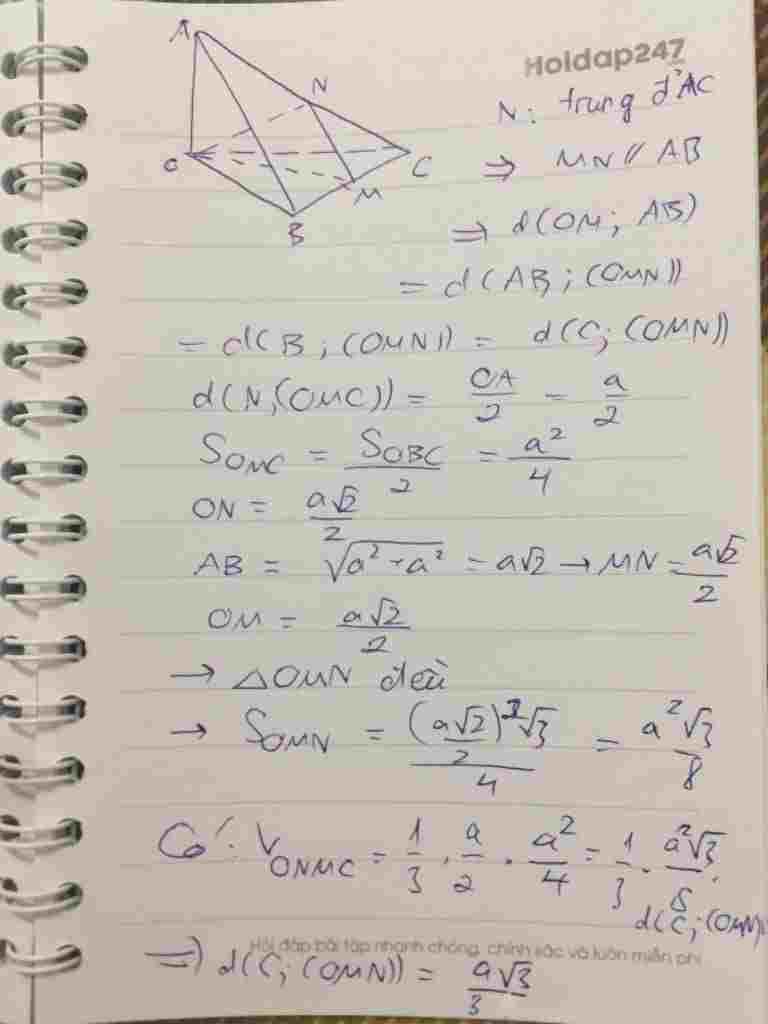 Hoidap247
A
N
O
C
M
B
N: trung đ' AC
⇒ MN // AB
⇒ d(OM; AB)
= d(AB; (OMN))
= d(B; (OMN)) = d(C; (OMN))
d(N,(OMC)) = OA/2 = a/2
S_OMC = S_OBC/2 = a²/4
ON = a√2/2
AB = √(a² + a²) = a√2 → MN = a√2/2
OM = a√2/2
→ △OMN đều
→ S_OMN = (a√2/2)²√3/4 = a²√3/8
Có: V_ONMC = 1/3 . a/2 . a²/4 = 1/3 . a²√3/8 . d(C; (OMN))
Hỏi đáp bài tập nhanh chóng, chính xác và luôn miễn phí
⇒ d(C; (OMN)) = a√3/3